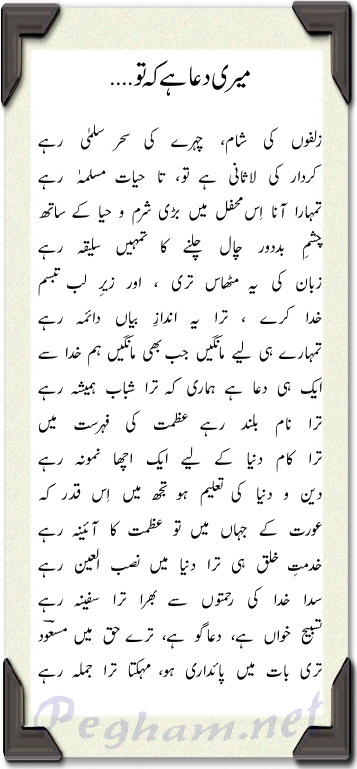 میری دعا ہے کہ تو ....
زلفوں کی شام، چہرے کی سحر سلمیٰ رہے
کردار کی لاثانی ہے تو، تا حیات مسلمہ رہے
تمہارا آنا اِس محفل میں بڑی شرم و حیا کے ساتھ
چشمِ بددور چال چلنے کا تمہیں سلیقہ رہے
زبان کی یہ مٹھاس تری ، اور زیرِ لب تبسم
خدا کرے ، ترا یہ اندازِ بیاں دائمہ رہے
تمہارے ہی لیے مانگیں جب بھی مانگیں ہم خدا سے
ایک ہی دعا ہے ہماری کہ ترا شباب ہمیشہ رہے
ترا نام بلند رہے عظمت کی فہرست میں
ترا کام دنیا کے لیے ایک اچھا نمونہ رہے
دین و دنیا کی تعلیم ہو تجھ میں اِس قدر کہ
عورت کے جہاں میں تو عظمت کا آئینہ رہے
خدمتِ خلق ہی ترا دنیا میں نصب العین رہے
سدا خدا کی رحمتوں سے بھرا ترا سفینہ رہے
تسبیح خواں ہے، دعاگو ہے، ترے حق میں مسعود
تری بات میں پائداری ہو، مہکتا ترا جملہ رہے
Pegham.net